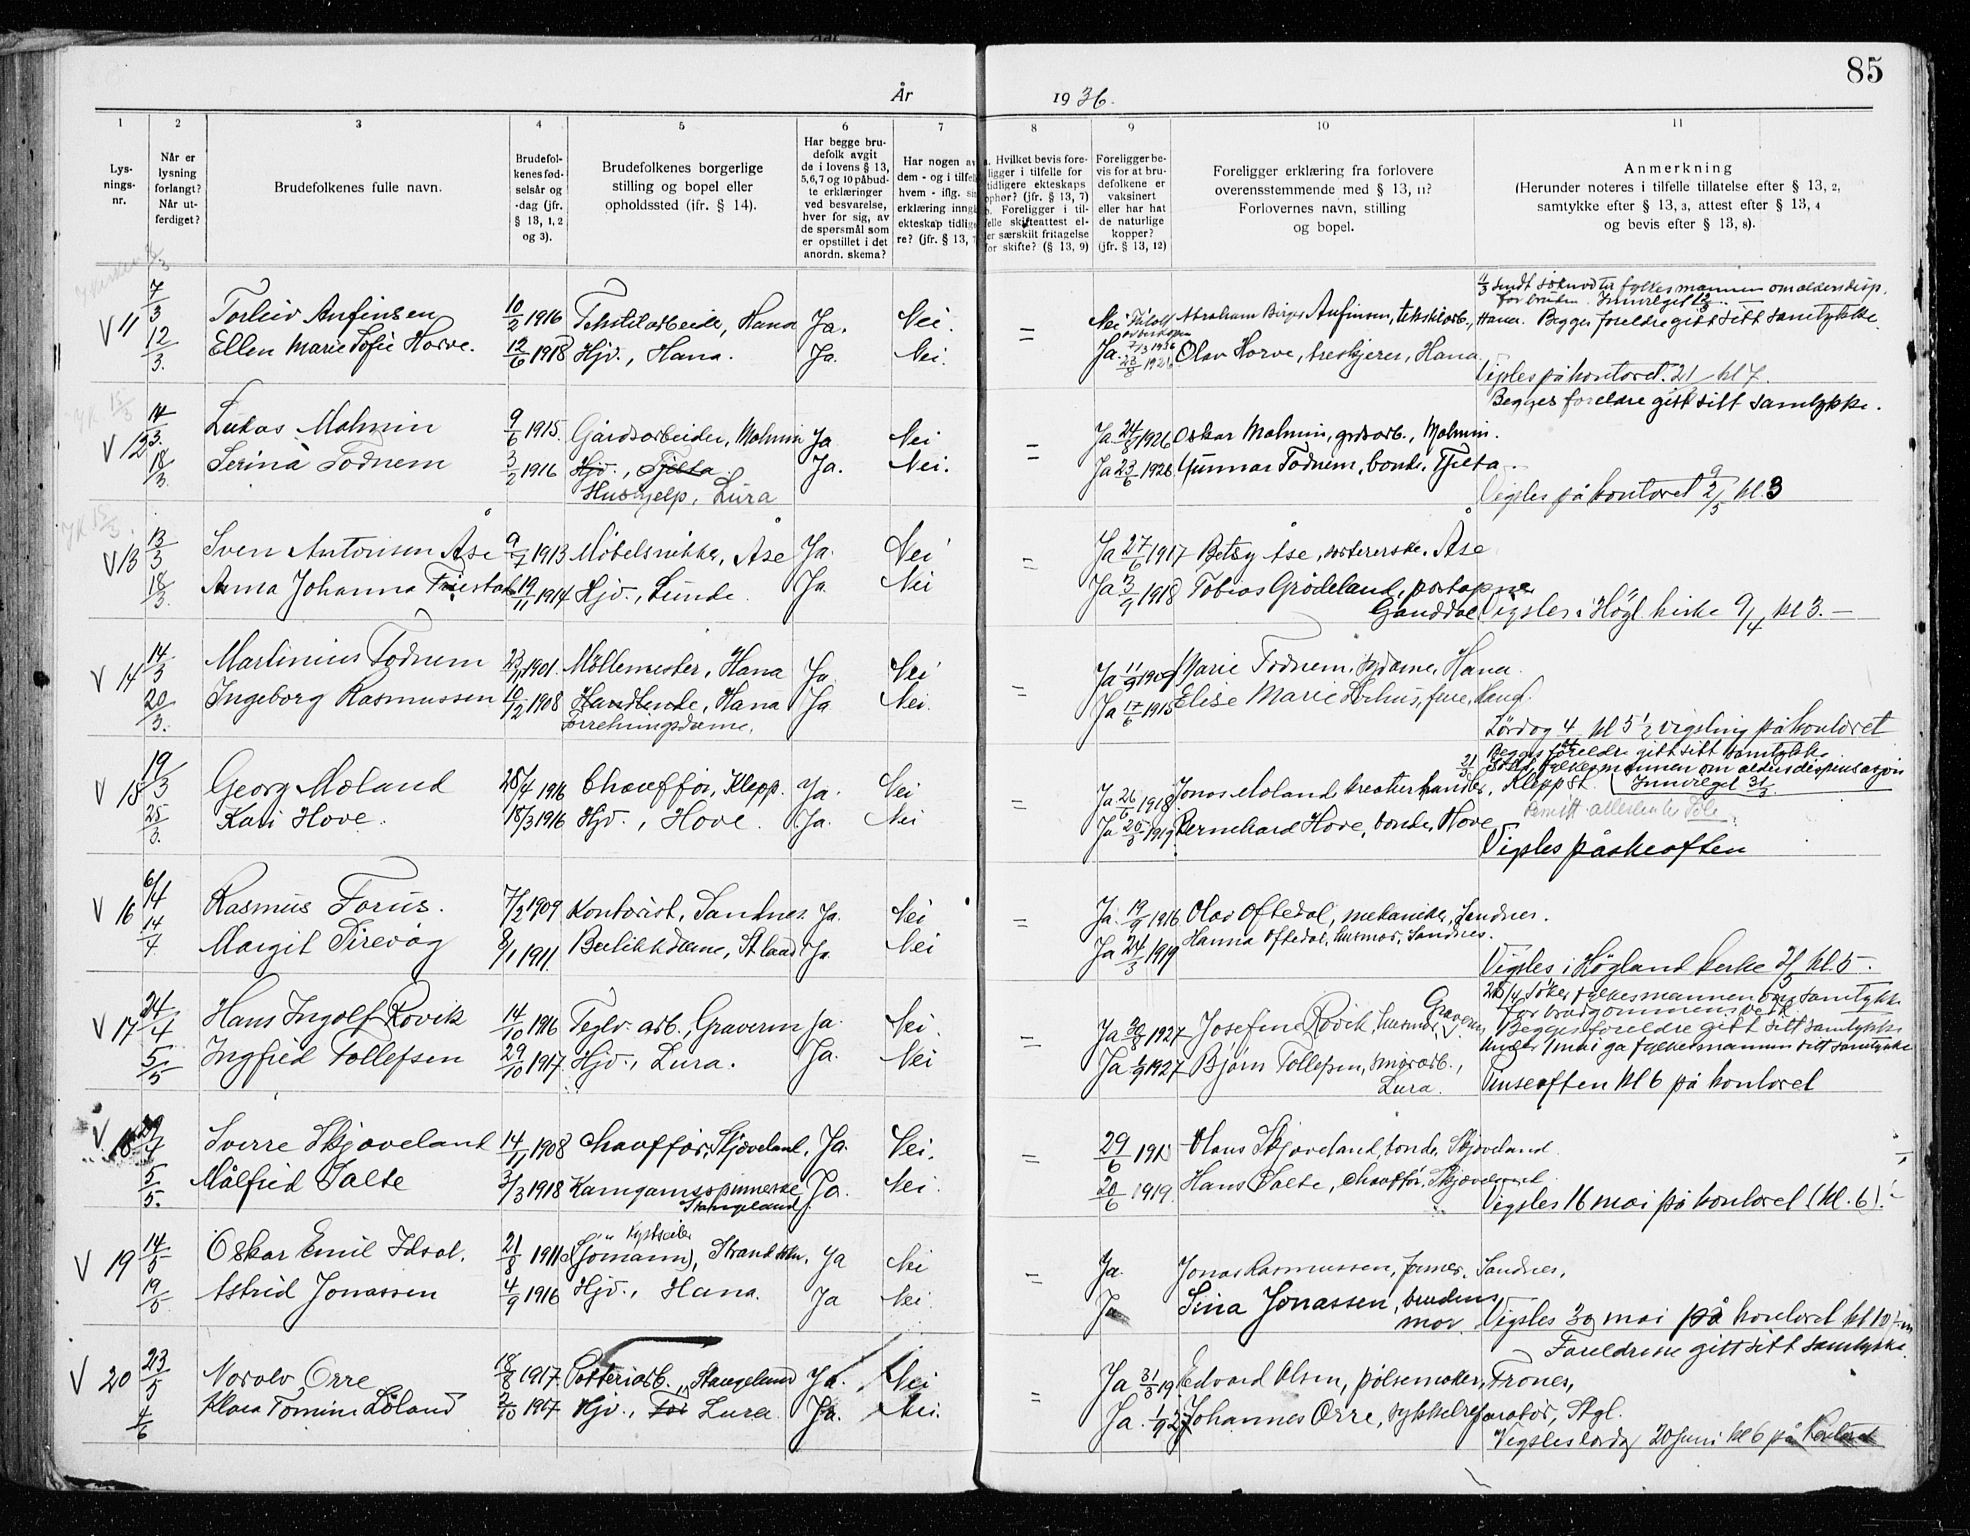 85
År 1936.
1 2 3 4 5 6 7 8 9 10 11
Lys-
nings-
nr.
Når er
lysning
forlangt?
Når ut-
ferdiget?
Brudefolkenes fulle navn.
Brudefol-
kenes fød-
selsår og
-dag (jfr.
§ 13, 1, 2
og 3).
Brudefolkenes borgerlige
stilling og bopel eller
opholdssted (ifr. § 14).
Har begge bru-
defolk avgit
de i lovens § 13,
5, 6, 7 og 10 påbud-
te erklæringer
ved besvarelse,
hver for sig, av
de spørsmål som
er opstillet i det
anordn. skema?
Har nogen av
dem - og i tilfelle
hvem - iflg.
erklæring inngå
ekteskap tidlige
re? (jfr. § 13, 7
Hvilket bevis fore-
ligger i tilfelle for
tidligere ekteskaps
ophør? (jfr. § 13, 7)
b. Foreligger i til-
felle skifteattest el-
ler særskilt fritagelse
for skifte? (§ 13, 9)
Foreligger be-
vis for at bru-
defolkene er
vaksinert
eller har hat
de naturlige
kopper?
(jfr. § 13, 12)
Foreligger erklæring fra forlovere
overensstemmende med § 13, 11?
Forlovernes navn, stilling
og bopel.
Anmerkning
(Herunder noteres i tilfelle tillatelse efter § 13, 2,
samtykke efter § 13, 3, attest efter § 13, 4
og bevis efter § 13, 8).
4/3 sendt søknad til fylkesmannen om aldersdisp.
for bruden. Innvilget 12/3.
V 11 7/3 Torleiv Anfinsen 10/2 1916 Tekstilarbeider, Hana Ja. Nei. = Nei Abraham Birger Anfinsen, tekstilarb., Hana. Begges foreldre gitt sitt samtykke.
12/3. Ellen Marie Sofie Horve. 12/6 1918 Hjv., Hana. Ja. Nei. Ja. Olav Horve, treskjerer, Hana
Vigsles på kontoret. 21/ kl 7.
Begges foreldre gitt sitt samtykke.
V 12 14/3. Lukas Malmin 9/6 1915. Gårdsarbeider, Malmin Ja Nei = Ja 24/8 1926 Oskar Malmin, grdsarb., Malmin.
18/3. Serina Todnem 3/2 1916 Hjv., Tjelta Ja. Nei. Ja 23/6 1928 Gunnar Todnem, bonde, Tjelta.
Hushjelp, Lura Vigsles på kontoret 2/5 kl. 3
V 13 13/3 Sven Antonsen Åse 9/7 1913 Møbelsnikker, Åse Ja. Nei = Ja 27/6 1917 Betsy Åse, sortererske, Åse
18/3. Anna Johanna Friestad 19/11 1914 Hjv., Lunde. Ja. Nei Ja 3/9 1918 Tobias Grødeland, poståpner
Ganddal Vigsles i Høgl. kirke 9/4 kl 3. —
V 14 14/3 Martinius Todnem 23/11 1901. Møllemester, Hana Ja. Nei = Ja 11/9 1909 Marie Todnem, Hana.
20/3. Ingeborg Rasmussen 10/2 1908 Handlende, Hana Ja Nei. Ja 17/6 1915 Elise Marie
Forretningsdame.
Lørdag 4 kl 5 1/2 vigsling på kontoret
Begges foreldre gitt sitt samtykke
21/3 fylkesmannen om aldersdispensasjon
V 15 19/3 Georg Moland 28/4 1916 Chauffør, Klepp. Ja. Nei Ja 26/6 1918. Jonas Moland kreaturhandler, Klepp st. Innvilget 31/3
25/3. Kari Hove. 18/3 1916 Hjv., Hove. Ja. Nei Ja 25/8 1919. Bernhard Hove, bonde, Hove
Vigsles påskeaften
V 16 6/4 Rasmus Forus. 7/2 1909 Kontorist, Sandnes. Ja. Nei = Ja. 19/9 1916 Olav Oftedal, mekaniker, Sandnes.
14/4. Margit Sirevåg 8/1 1911. Butikkdame, St.land Ja. Nei Ja 24/3 1919 Hanna Oftedal, husmor, Sandnes.
Vigsles i Høyland kirke 2/5 kl. 5.
Søker fylkesmannen om samtykke
for brudgommens vedk.
V 17 24/4 Hans Ingolf Rovik 14/10 1916 Teglv. arb., Graveren Ja. Nei. = Ja 30/8 1927 Josefine Rovik, husmor, Graveren Begges foreldre gitt sitt samtykke
Under 1 mai ga fylkesmannen sitt samtykke
5/5 Ingfrid Tollefsen 29/10 1917. Hjv., Lura. Ja. Nei Ja 1/9 1927 Bjørn Tollefsen, smørarb.,
Lura. Pinseaften kl 6 på kontoret
V 18 Sverre Skjæveland 14/11 1908 Chauffør, Skjæveland. Ja. Nei. = 29/6 Olaus Skjæveland, bonde, Skjæveland.
5/5. Målfrid Salte 3/3 1918 Kamgarnsspinnerske, Ja. Nei. 20/6 1919. Hans Salte, chauffør, Skjæveland
Stangeland. Vigsles 16 mai på kontoret (kl. 6).
V 19 14/5 Oskar Emil Idsal. 21/8 1911 Kystseiler (sjømann), Strand Ja Nei = Ja. Jonas Rasmussen, former, Sandnes.
19/5. Astrid Jonassen 4/9 1916 Hjv., Hana. Ja Nei. Ja Sina Jonassen, brudens
mor. Vigsles 30 mai på kontoret kl 12
Foreldrene gitt sitt samtykke.
V 20 23/5 Norolv Orre 18/8 1917. Potteriarb., Stangeland Ja. Nei = Ja 31/8 19. Edvard Olsen, pølsemaker, Trones,
4/6 Klara Tomine Löland 2/10 1917 Hjv., Lura. Ja. Nei. Ja. 1/9 27 Johannes Orre, sykkelreparatør, Stgl.
Vigsles lørdag 20 juni kl 6 på kontoret